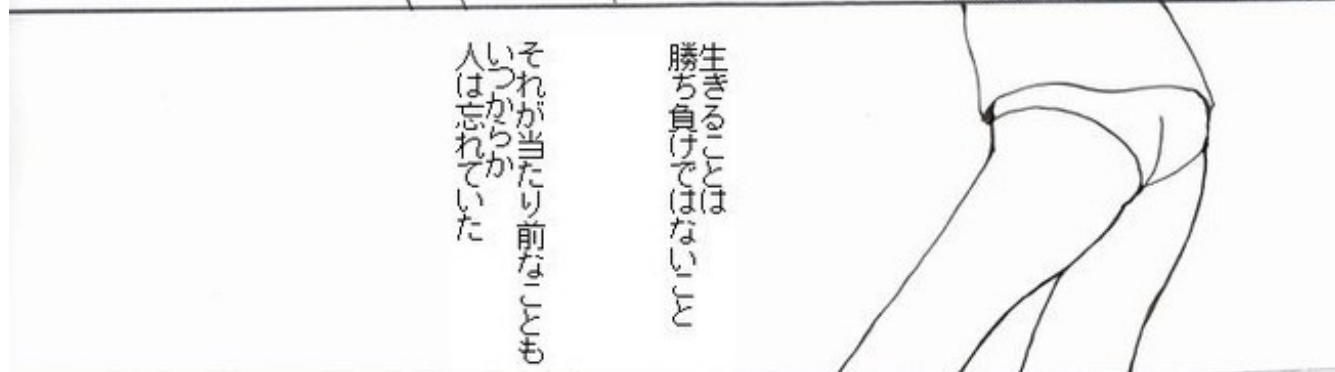 生きることは
勝ち負けではないこと
それが当たり前なことも
いつからか
人は忘れていた